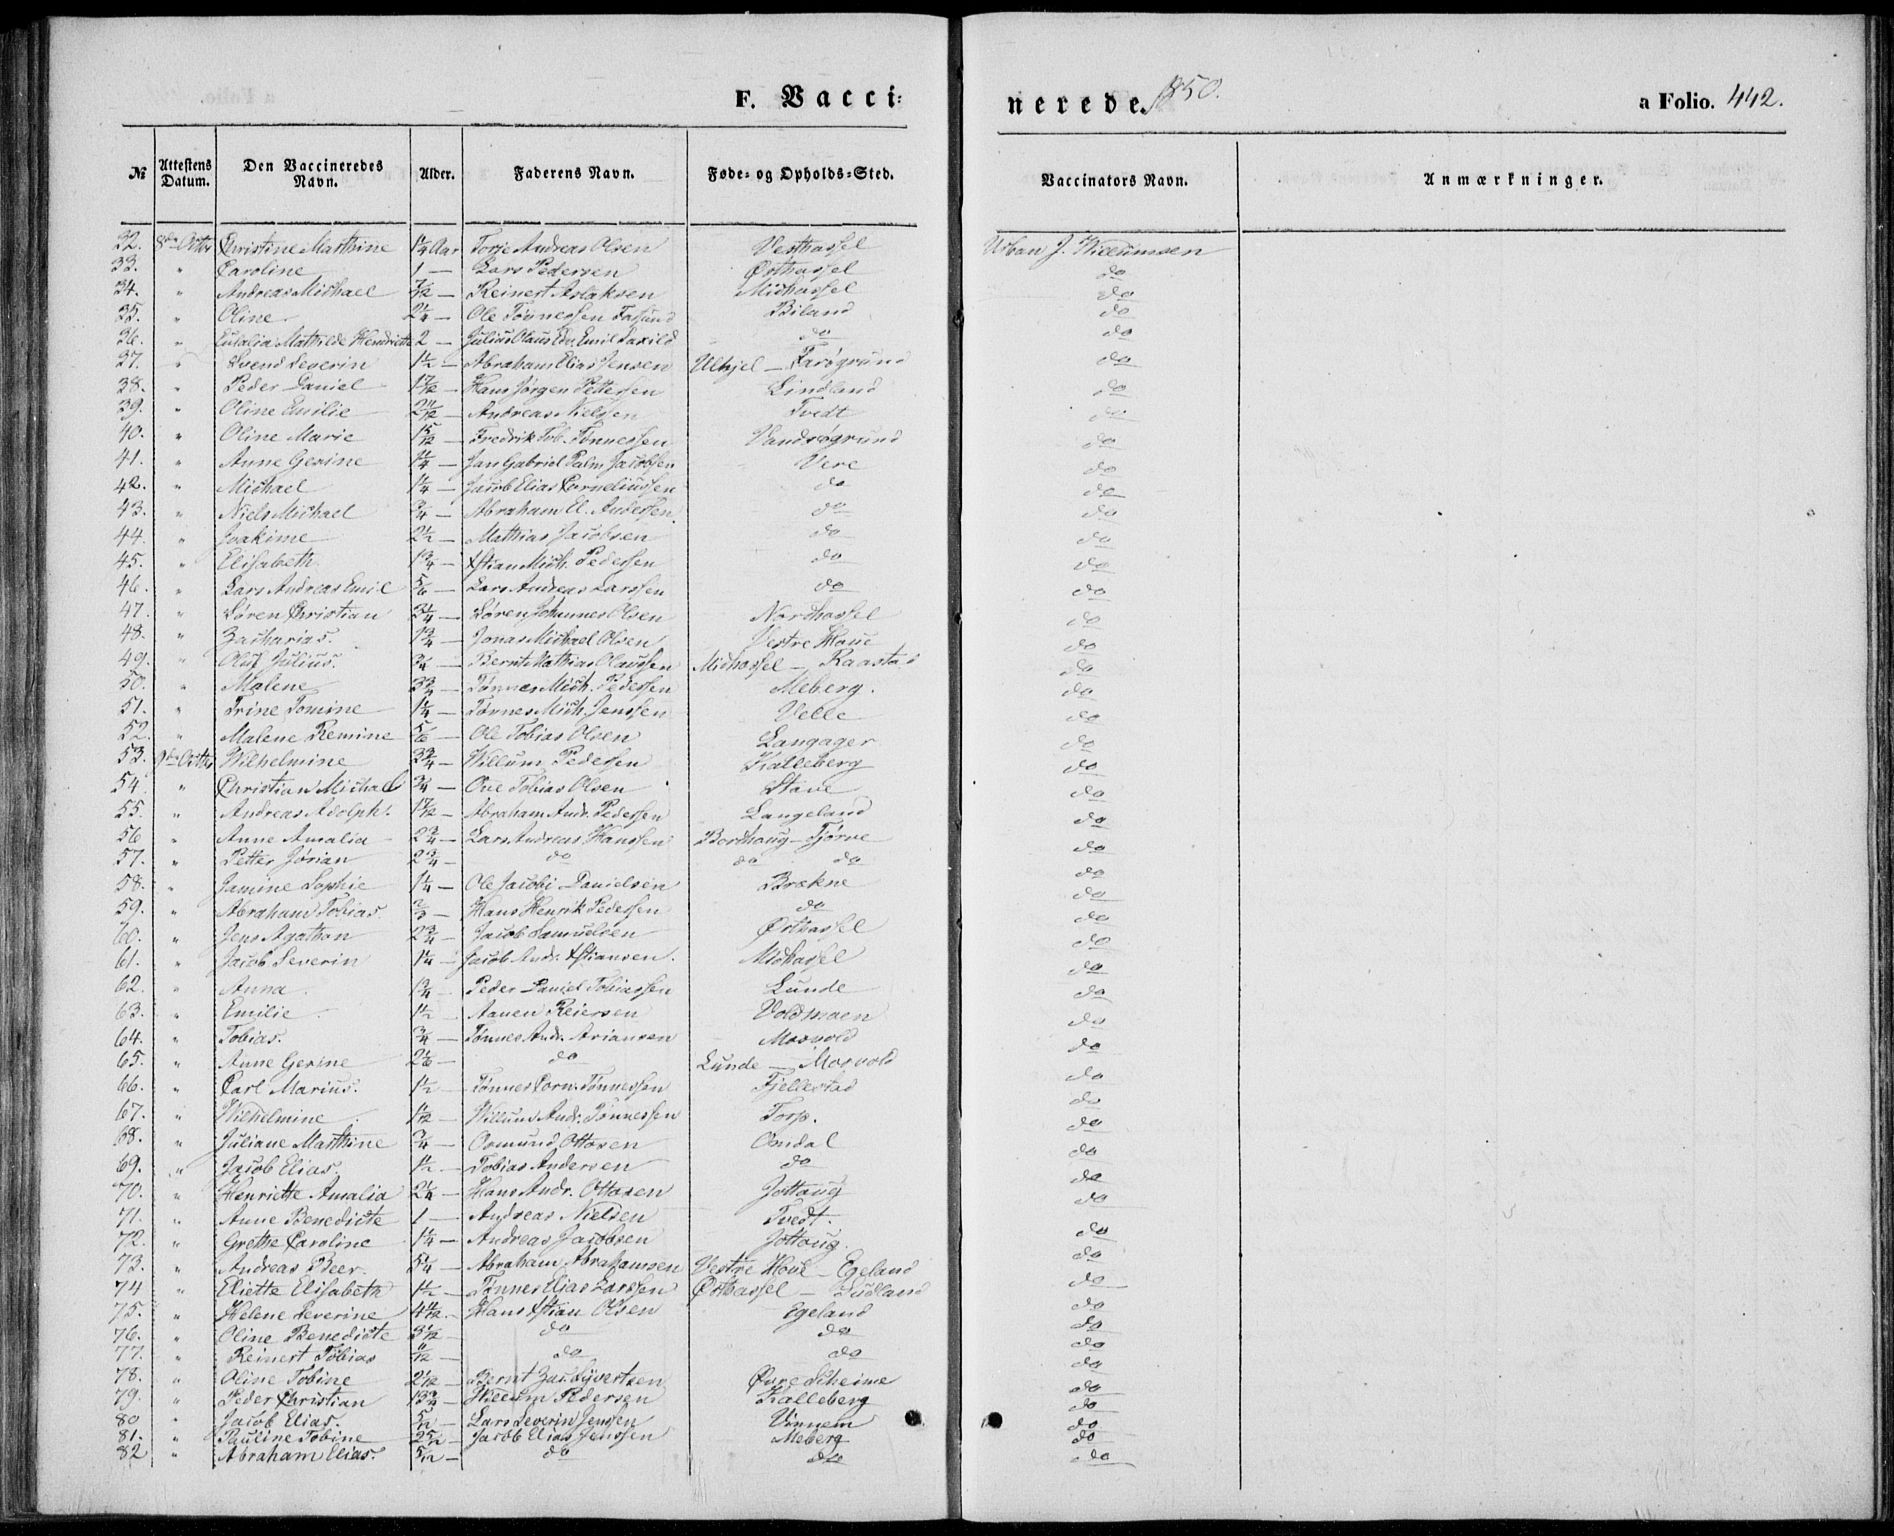 F. Vacci=
nerede. 1850.
a Folio. 442.
№ Attestens Datum. Den Vaccineredes Navn. Alder. Faderens Navn. Føde- og Opholds-Sted. Vaccinators Navn. Anmærkninger.
32. 8de Octbr Christine Marthine 1 1/4 Aar Torje Andreas Olsen Vesthassel Urban J. Willumsen
33. " Caroline 1 — Lars Pedersen Østhassel do
34. " Andreas Michael 7/12 — Reinert Aslaksen Midhassel do
35. " Oline 2 1/4 — Ole Tønnessen Farsund Biland do
36. " Eulalia Mathilde Hendrikke 2 — Julius Olaus Edv. Emil Saxild do do
37. " Svend Severin 1 1/2 — Abraham Elias Jensen Ulhjel — Farøgrund do
38. " Peder Daniel 1 7/12 — Hans Jørgen Pettersen Lindland do
39. " Oline Emilie 2 11/12 — Andreas Nielsen Tvedt do
40. " Oline Marie 1 5/12 — Fredrik Tob. Tønnessen Vandsøgrund do
41. " Anne Gesine 1 1/4 — Jan Gabriel Palm Jacobsen Vere do
42. " Michael 1 1/4 — Jacob Elias Corneliussen do do
43. " Niels Michael 3/4 — Abraham El. Andersen do do
44. " Joakime 2 1/2 — Mathias Jacobsen do do
45. " Elisabeth 1 3/4 — Xstian Mich. Pedersen do do
46. " Lars Andreas Emil 5/6 — Lars Andreas Larssen do do
47. " Søren Christian 3 1/4 — Søren Johannes Olsen Nordhassel do
48. " Zacharias. 1 3/4 — Jonas Michael Olsen Vestre Houe do
49. " Oluf Julius. 3/4 — Bernt Mathias Olaussen Midhassel — Raastad do
50. " Malene 3 3/4 — Tønnes Mich. Pedersen Meberg. do
51. " Trine Tomine 1 1/4 — Tønnes Mich. Jenssen Velle do
52. " Malene Remine 5/6 — Ole Tobias Olsen Langager do
53. 9de Octbr Wilhelmine 3 3/4 — Willum Pedersen Kalleberg do
54. " Christian Michael 3/4 — Ove Tobias Olsen Stave do
55. " Andreas Adolph. 1 7/12 — Abraham Andr. Pedersen Langeland do
56 " Anne Amalia 2 3/4 — Lars Andreas Hanssen Borthaug — Tjørve do
57. " Petter Jørian 2 3/4 — do do do do
58. " Jamine Sophie 1 1/4 — Ole Jacobi Danielsen Brekne do
59. " Abraham Tobias 2/3 — Hans Henrik Pedersen do do
60. " Jens Agathon 2 3/4 — Jacob Samuelsen Østhassel do
61. " Jacob Severin 1 1/4 — Jacob Andr. Xstiansen. Midhassel do
62. " Anna 1 3/4 — Peder Daniel Tobiassen Lunde do
63. " Emilie 1 1/2 — Aanen Reiersen Voldmoen do
64. " Tobias. 3/4 — Tønnes Andr. Ariansen Mosvold do
65. " Anne Gesine 2 1/6 — do Lunde — Mosvold do
66. " Carl Marius. 1 1/2 — Tønnes Corn. Tønnessen Fjellestad do
67. " Wilhelmine 1 1/12 — Willum Andr. Tønnessen Torp. do
68. " Juliane Marthine 3/4 — Osmund Ottosen Omdal do
69. " Jacob Elias. 1 1/2 — Tobias Andersen do do
70. " Henriette Amalia 2 1/4 — Hans Andr. Ottosen Jøttoug do
71. " Anne Benedicte 1 — Andreas Nielsen Tvedt. do
72. " Grethe Caroline 1 1/4 — Andreas Jacobsen Jøttoug. do
73. " Andreas Beer. 5 1/4 — Abraham Abrahamsen Vestre Houe — Egeland do
74 " Eliette Elisabeth 1 1/2 — Tønnes Elias Larssen Østhassel — Sudland do
75. " Helene Severine 4 1/12 — Hans Xstian Olsen Egeland do
76. " Oline Benedicte 3 1/12 — do do do
77. " Reinert Tobias 11/12 — do do do
78. " Oline Tobine 2 1/12 — Bernt Zac. Syvertsen Øvre Skeime do
79. " Peder Christian 13 3/4 — Willum Pedersen Kalleberg do
80 " Jacob Elias. 5/12 — Lars Severin Jenssen Vinnem do
81. " Pauline Tobine 2 5/12 — Jacob Elias Jenssen Meberg do
82 " Abraham Elias. 5/12 — do do do